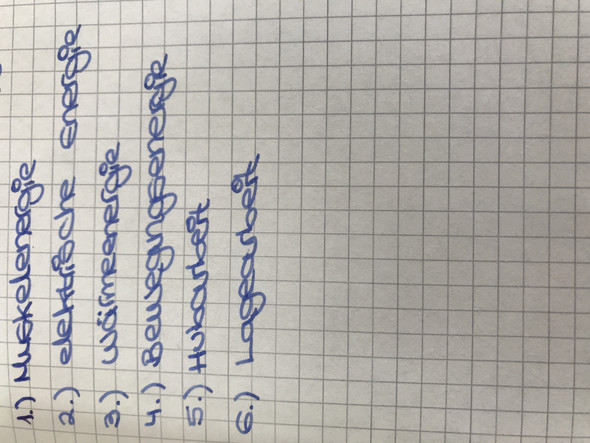 1.) Muskelenergie
2.) elektrische energie
3.) wärmeenergie
4.) Bewegungsenergie
5.) Hubarbeit
6.) Lagearbeit